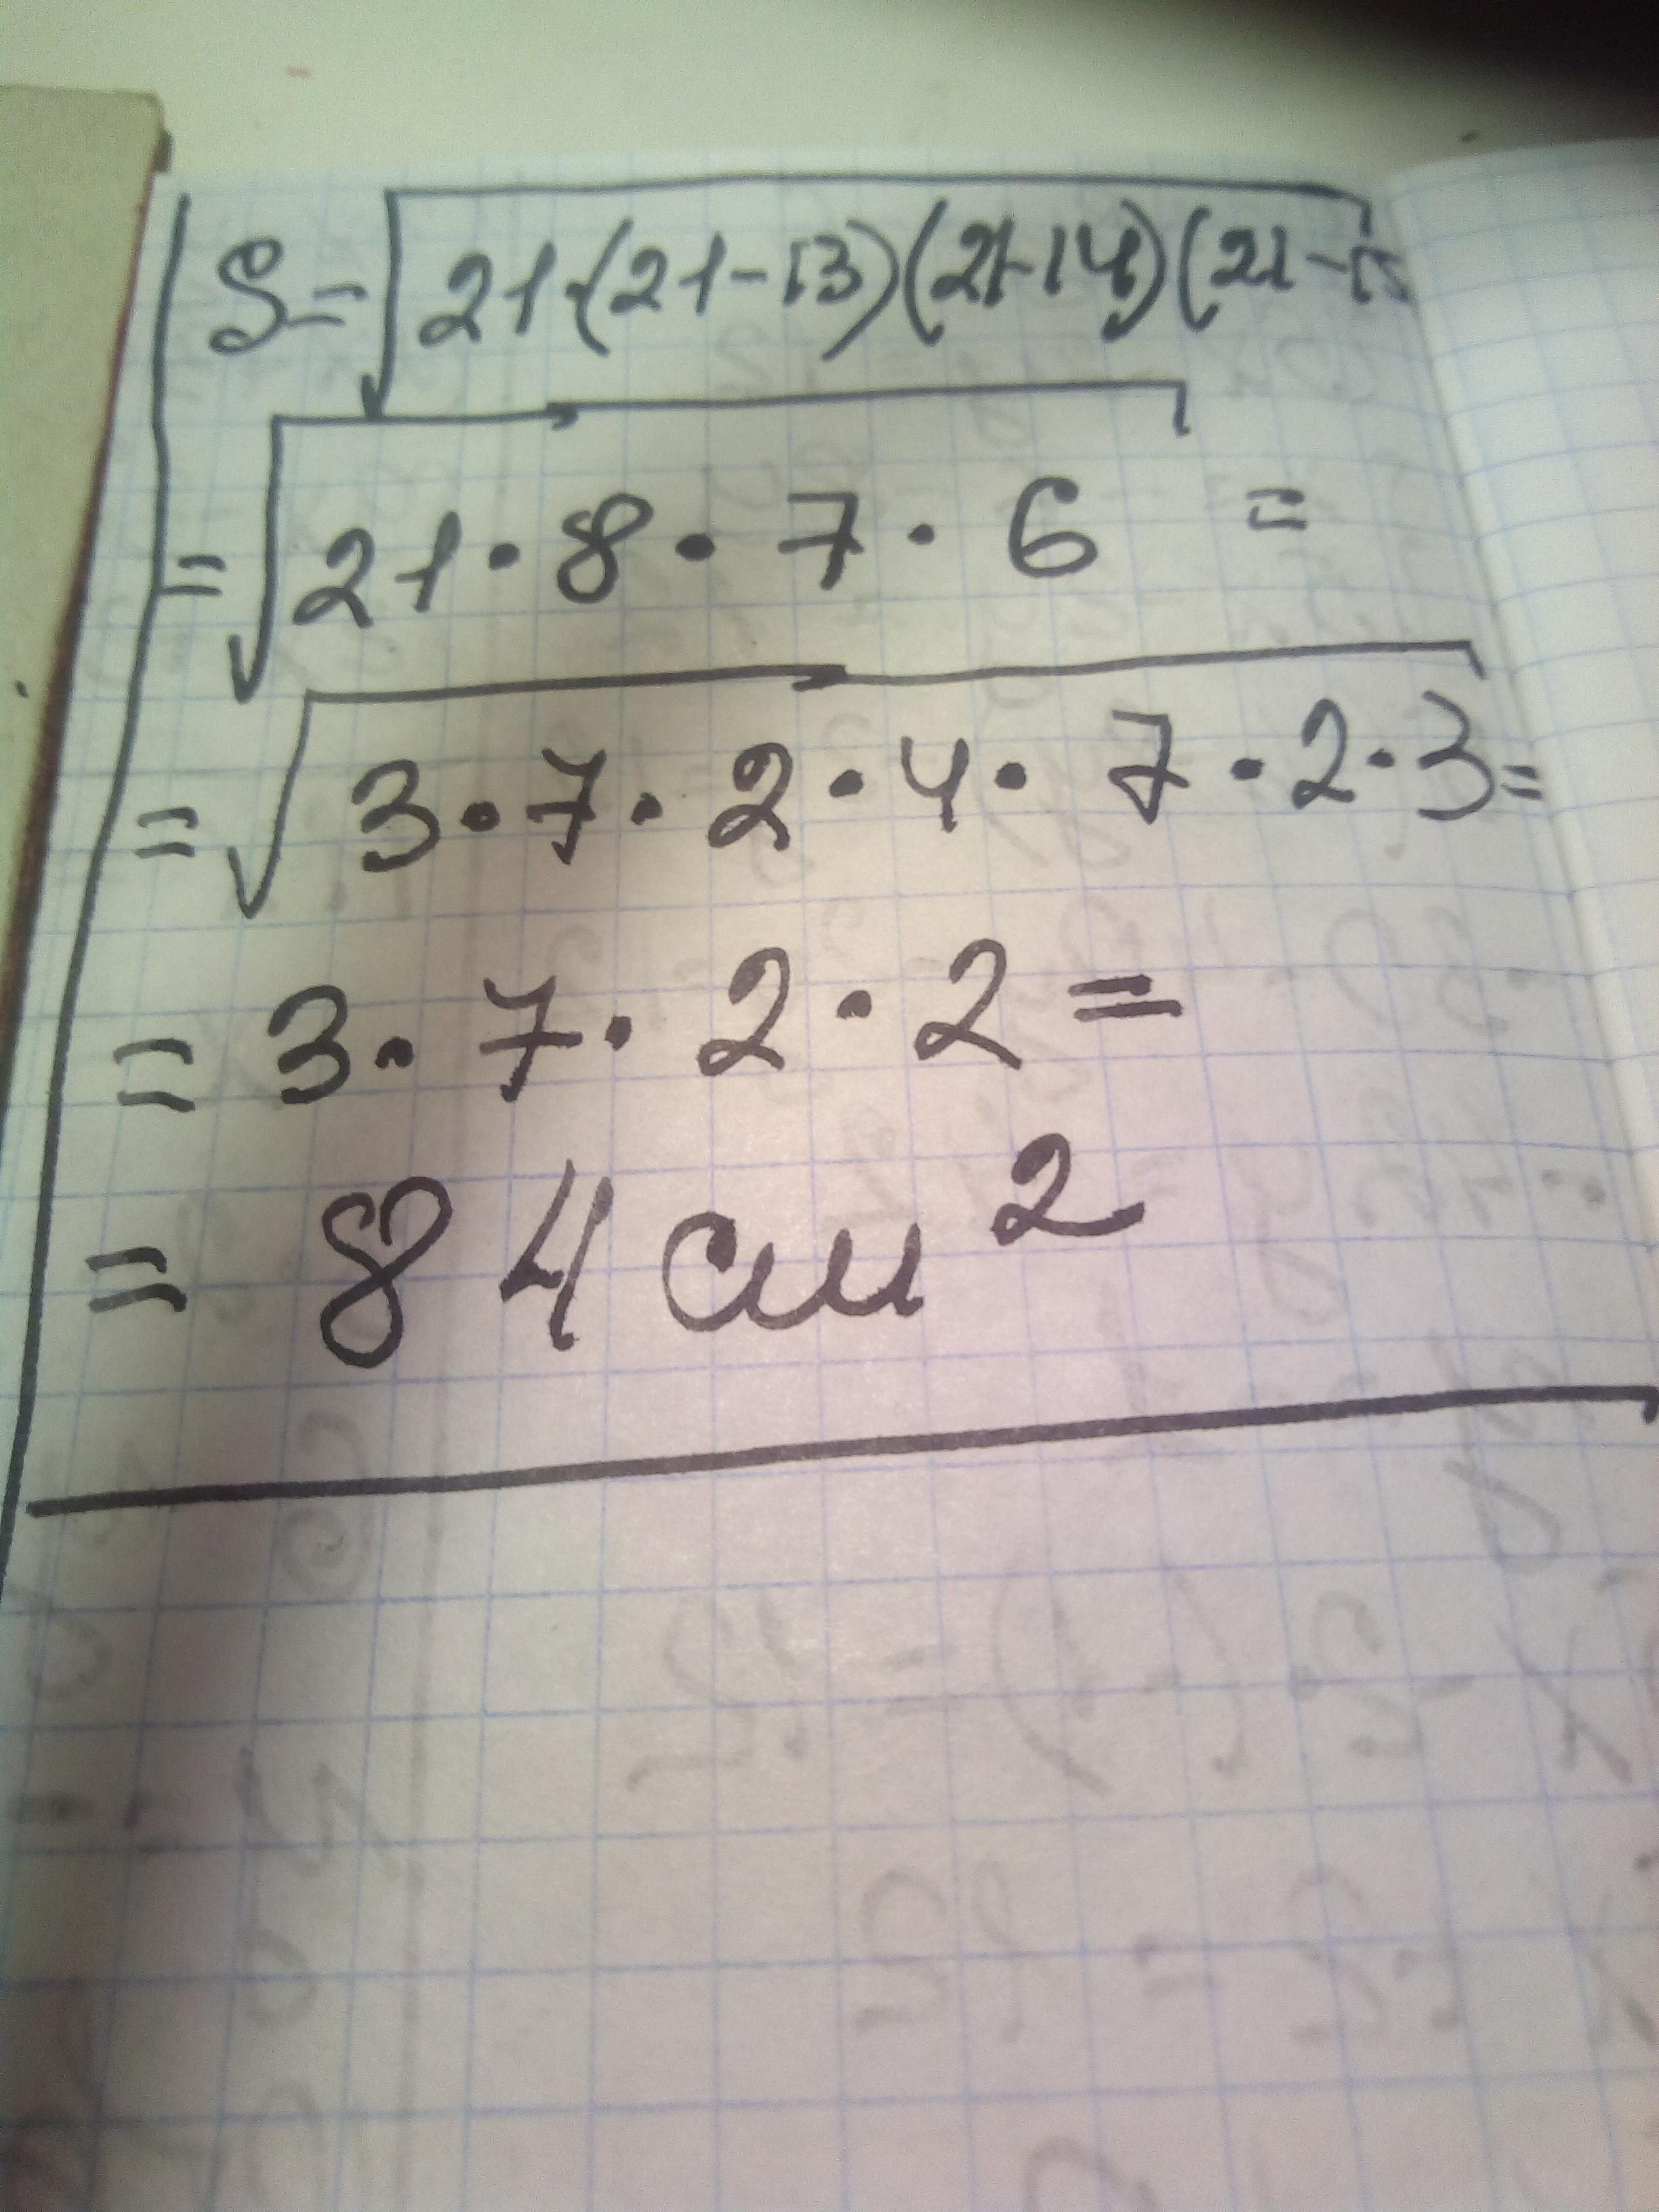 S=√21·(21-13)(21-14)(21-15
=√21·8·7·6 =
=√3·7·2·4·7·2·3=
=3·7·2·2=
=84см²